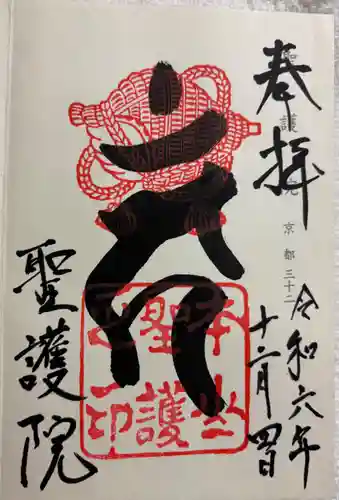 奉拝
聖護院
京都三十二
令和六年
十二月四日
本山
聖護
印
聖護院